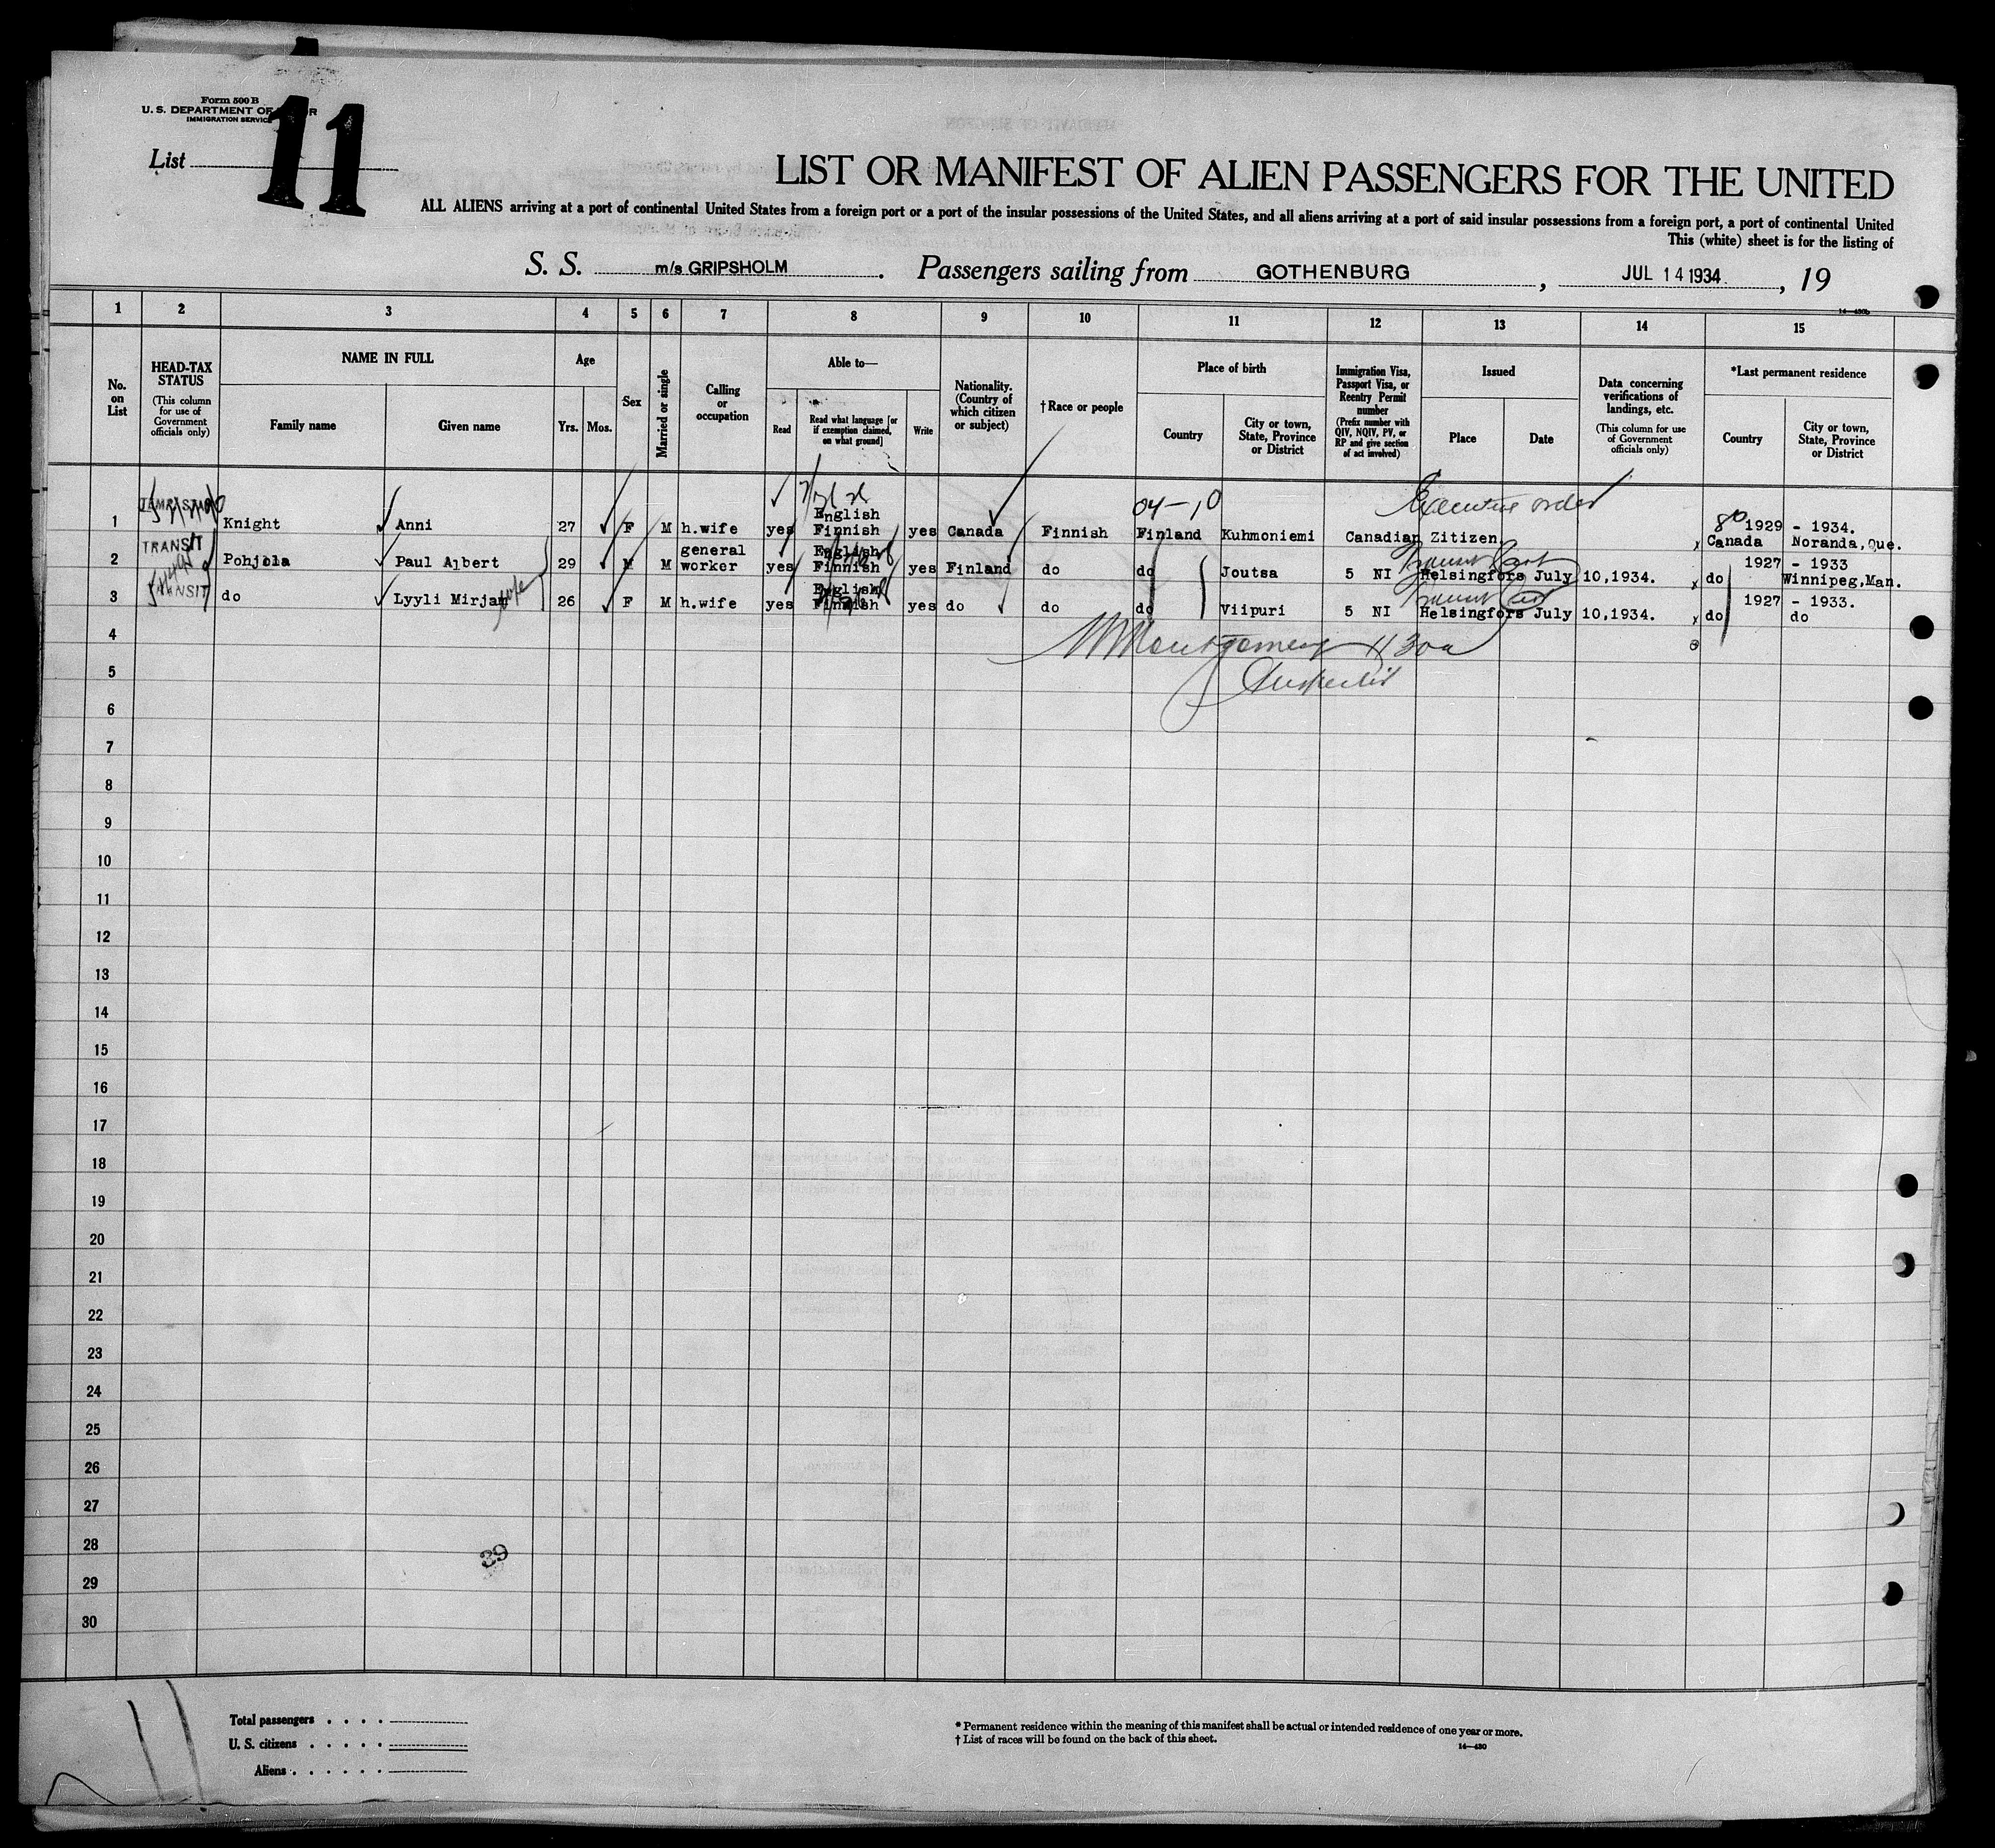 Form 500 B
U. S. DEPARTMENT OF
IMMIGRATION SERVICE
List
11
LIST OR MANIFEST OF ALIEN PASSENGERS FOR THE UNITED
ALL ALIENS arriving at a port of continental United States from a foreign port or a port of the insular possessions of the United States, and all aliens arriving at a port of said insular possessions from a foreign port, a port of continental United
This (white) sheet is for the listing of
S. S. m/s GRIPSHOLM. Passengers sailing from GOTHENBURG, JUL 14 1934., 19
14—430b
1 2 3 4 5 6 7 8 9 10 11 12 13 14 15
No. on List
HEAD-TAX STATUS
(This column for use of Government officials only)
NAME IN FULL
Family name
Given name
Age
Yrs. Mos.
Sex
Married or single
Calling or occupation
Able to—
Read
Read what language [or if exemption claimed, on what ground]
Write
Nationality. (Country of which citizen or subject)
†Race or people
Place of birth
Country
City or town, State, Province or District
Immigration Visa, Passport Visa, or Reentry Permit number
(Prefix number with QIV, NQIV, PV, or RP and give section of act involved)
Issued
Place
Date
Data concerning verifications of landings, etc.
(This column for use of Government officials only)
*Last permanent residence
Country
City or town, State, Province or District
04-10
Executive order
1 Knight Anni 27 F M h.wife yes English Finnish yes Canada Finnish Finland Kuhmoniemi Canadian Zitizen 1929 - 1934. Canada Noranda, Que.
TRANSIT
2 Pohjola Paul Albert 29 M M general worker yes English Finnish yes Finland do do Joutsa 5 NI Transit Cert Helsingfors July 10,1934. 1927 - 1933 do Winnipeg, Man.
TRANSIT
3 do Lyyli Mirjam wife 26 F M h.wife yes English Finnish yes do do do Viipuri 5 NI Transit Cert Helsingfors July 10,1934. 1927 - 1933. do do
4
Montgomery 1130a
5
Inspector
6
7
8
9
10
11
12
13
14
15
16
17
18
19
20
21
22
23
24
25
26
27
28
39
29
30
Total passengers . . . .
U. S. citizens . . . . .
Aliens . . . . . .
* Permanent residence within the meaning of this manifest shall be actual or intended residence of one year or more.
† List of races will be found on the back of this sheet.
14—430